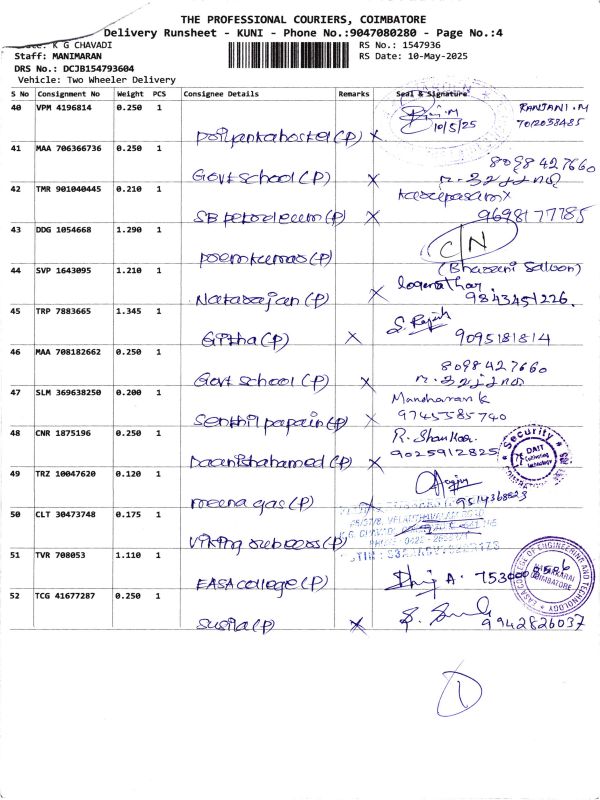 THE PROFESSIONAL COURIERS, COIMBATORE
Delivery Runsheet - KUNI - Phone No.:9047080280 - Page No.:4
K G CHAVADI RS No.: 1547936
Staff: MANIMARAN RS Date: 10-May-2025
DRS No.: DCJB154793604
Vehicle: Two Wheeler Delivery
S No Consignment No Weight PCS Consignee Details Remarks Seal & Signature
40 VPM 4196814 0.250 1 RANJANI.M
10/5/25 7012038485
Priyankahostel (P) X
41 MAA 706366736 0.250 1
8098427660
Govt school (P) X
42 TMR 901040445 0.210 1
SB petroleum (P) X 9698177785
43 DDG 1054668 1.290 1 C/N
(P) (Bhavani Saloon)
44 SVP 1643095 1.210 1 loganathan
Natarajan (P) X 9843451226
45 TRP 7883665 1.345 1 S. Rajesh
Githa (P) X 9095181814
46 MAA 708182662 0.250 1 8098427660
Govt school (P) X
47 SLM 369638250 0.200 1 Manoharan K
Senthil papain (P) X 9745585740
48 CNR 1875196 0.250 1 R. Shankar Security
(P) X 9025912825
49 TRZ 10047620 0.120 1
meena gas (P) X 9514368523
50 CLT 30473748 0.175 1
Viking rubbers (P)
51 TVR 708053 1.110 1
EASA college (P)
EASA COLLEGE OF ENGINEERING AND TECHNOLOGY
COIMBATORE
52 TCG 41677287 0.250 1
Susila (P) X 9942826037
1